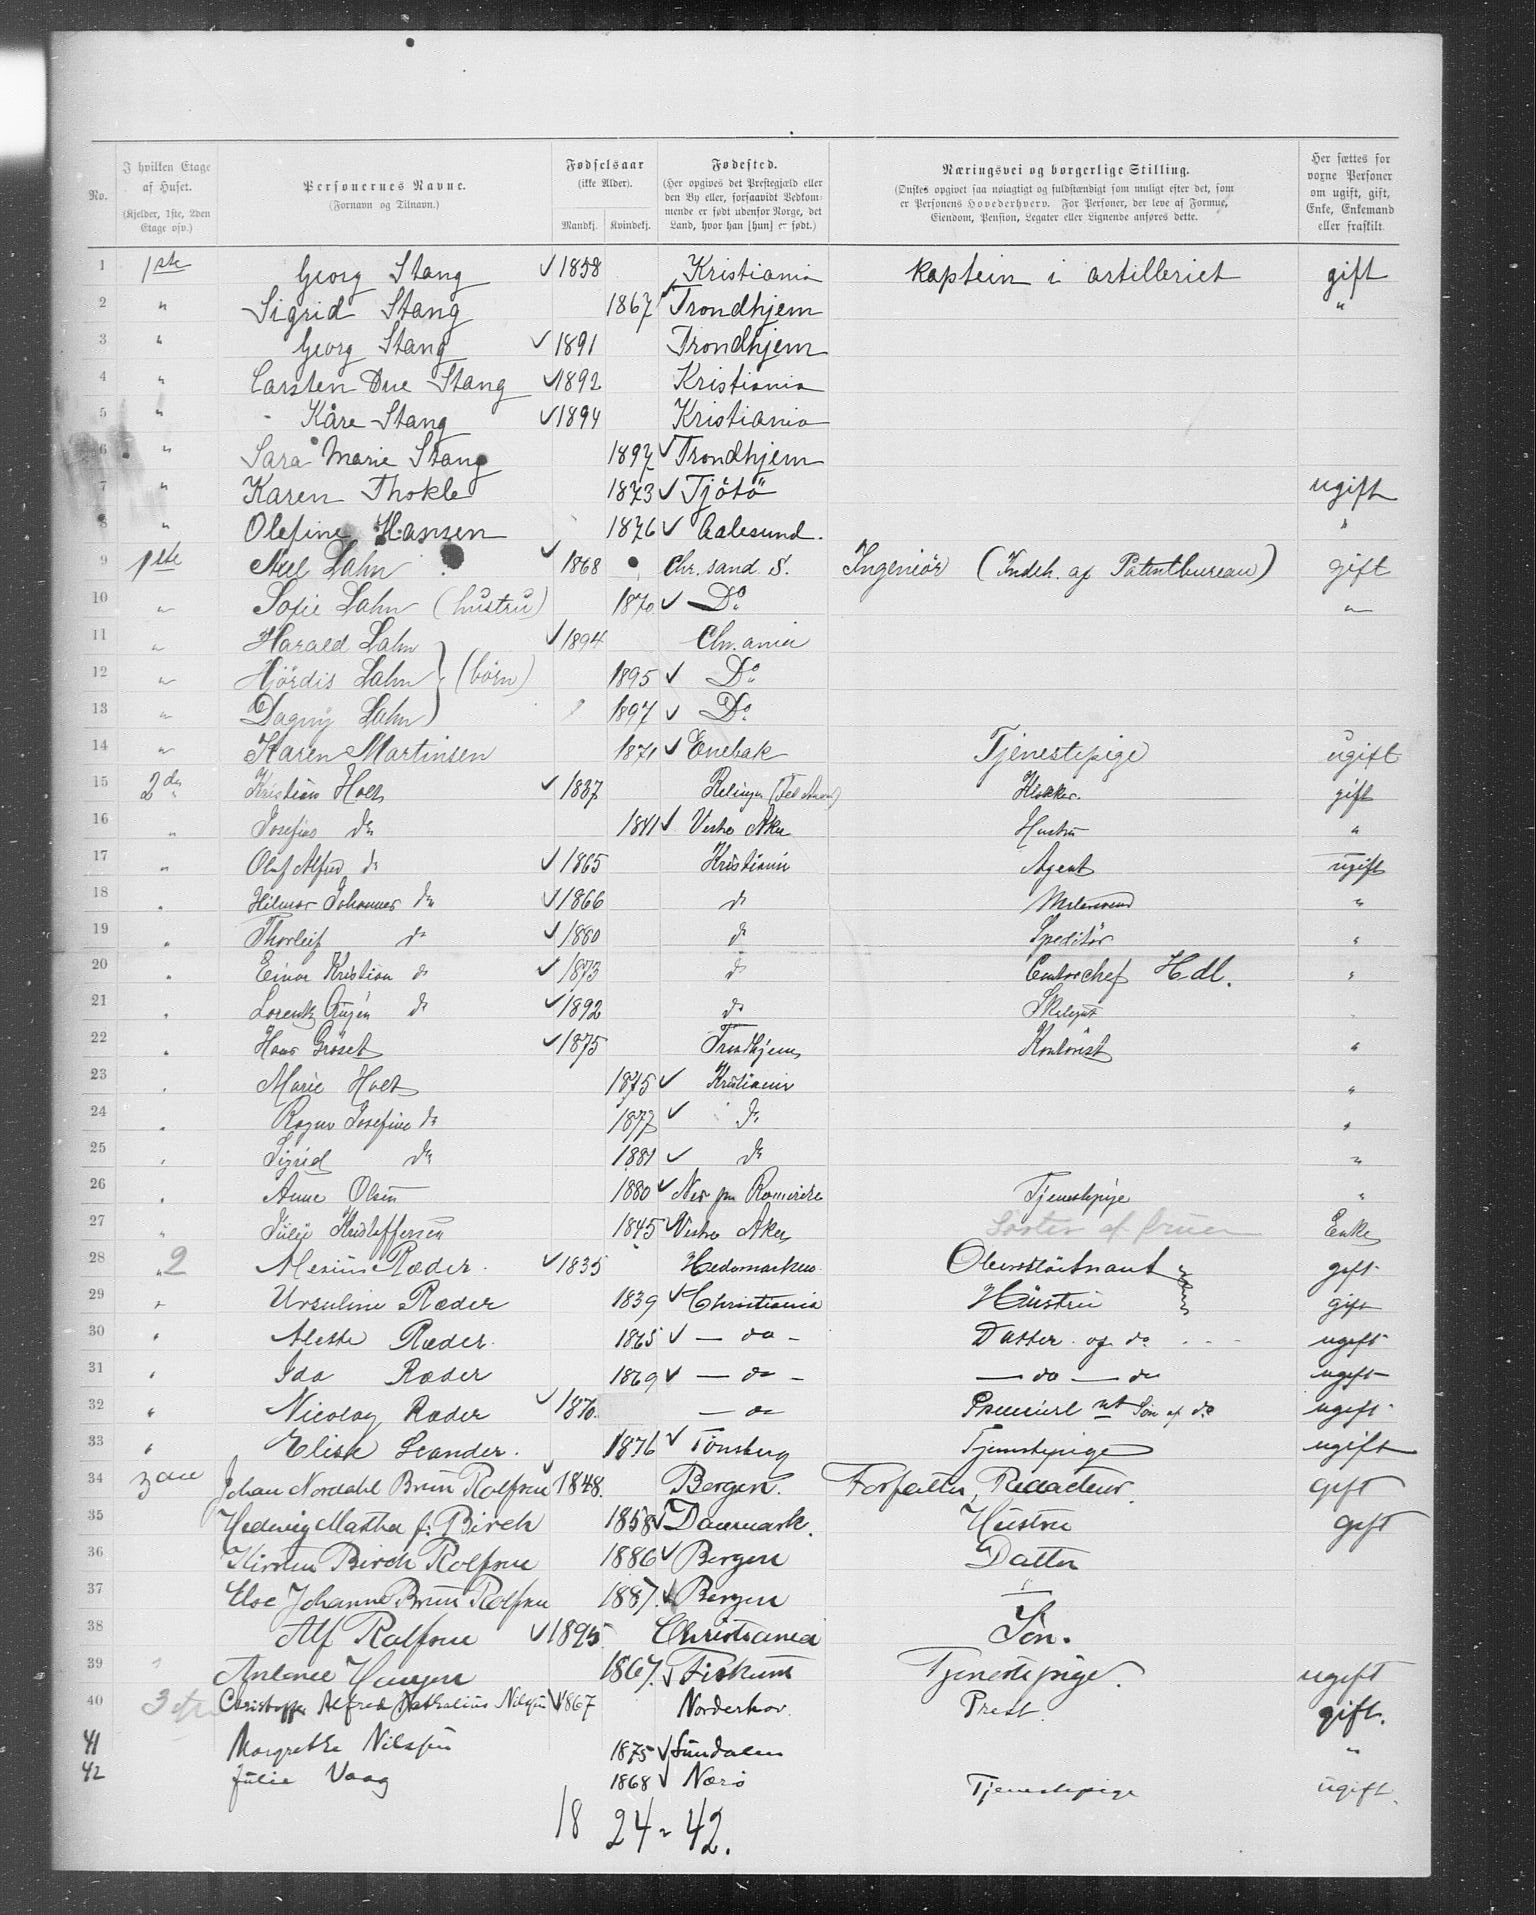 No.
I hvilken Etage af Huset.
(Kjelder, 1ste, 2den Etage osv.)
Personernes Navne.
(Fornavn og Tilnavn.)
Fødselsaar
(ikke Alder).
Mandkj. Kvindekj.
Fødested.
(Her opgives det Prestegjæld eller den By eller, forsaavidt Bedkommende er født udenfor Norge, det Land, hvor han [hun] er født.)
Næringsvei og borgerlige Stilling.
(Ønskes opgivet saa nøiagtigt og fuldstændigt som muligt efter det, som er Personens Hovederhverv. For Personer, der leve af Formue, Eiendom, Pension, Legater eller Lignende anføres dette.
Her sættes for voxne Personer om ugift, gift, Enke, Enkemand eller fraskilt.
1 1ste Georg Stang ✓ 1858 Kristiania kaptein i artilleriet gift
2 " Sigrid Stang 1867 ✓ Trondhjem "
3 " Georg Stang ✓ 1891 Trondhjem
4 " Carsten Due Stang ✓ 1892 Kristiania
5 " Kåre Stang ✓ 1894 Kristiania
6 " Sara Marie Stang 1897 ✓ Trondhjem
7 " Karen Thokle 1873 ✓ Tjötö ugift
8 " Olefine Hansen 1876 ✓ Aalesund. "
9 1ste Axel Lahn ✓ 1868 Chr.sand. S. Ingeniör (Indeh. af Patentbureau) gift
10 " Sofie Lahn (hustru) 1870 ✓ Do "
11 " Harald Lahn ✓ 1894 Chr.ania
12 " Hjördis Lahn (børn) 1895 ✓ Do
13 " Dagny Lahn 1897 ✓ Do
14 " Karen Martinsen 1871 ✓ Enebak Tjenestepige ugift
15 2den Kristian Holt ✓ 1837 Klokker. gift
16 " Josefine do 1841 ✓ Vestre Aker Hustru "
17 " Olaf Alfred do ✓ 1865 Kristiania Agent ugift
18 " Hilmar Johannes do ✓ 1866 do "
19 " Thorleif do ✓ 1880 do Speditör "
20 " Einar Kristian do ✓ 1873 do Contorchef Hdl. "
21 " Lorentz do ✓ 1892 do Skolegut
22 " Hans Gröset ✓ 1875 Trondhjem Kontorist "
23 " Marie Holt 1875 ✓ Kristiania "
24 " Josefine do 1877 ✓ do "
25 " Sigrid do 1881 ✓ do "
26 " Anne Olsen 1880 ✓ Nes paa Romerike Tjenestepige "
27 " Julie Kristoffersen 1845 ✓ Vestre Aker Søster af fruen Enke
28 " 2 Ræder ✓ 1835 Hedemarken Oberstløitnant gift
29 " Ursuline Ræder 1839 ✓ Christiania Hustru gift
30 " Ræder. 1865 ✓ — do — Datter af do ugift
31 " Ida Ræder 1869 ✓ — do — — do — do ugift
32 " Nicolay Ræder ✓ 1870. — do Premierl nt Søn af do ugift
33 " Elise Leander. 1876 ✓ Tönsberg Tjenestepige ugift
34 3die Johan Nordahl Brun Rolfsen ✓ 1848. Bergen. Forfatter, Redacteur. gift
35 Hedevig Martha f: Birch 1858 ✓ Danmark. Hustru gift
36 Kirsten Birch Rolfsen 1886 ✓ Bergen Datter
37 Else Johanne Brun Rolfsen 1887. ✓ Bergen —
38 Alf Rolfsen ✓ 1895 Christiania Søn.
39 Antonie Haugen 1867. ✓ Fiskum Tjenestepige. ugift
40 3 Christoffer Alfred Nathalius Nilssen ✓ 1867 Norderhov Prest. gift.
41 Margrethe Nilssen 1875 ✓ Sundalen "
42 Julie Vaag 1868 ✓ Nærø Tjenestepige ugift.
18 24 = 42.